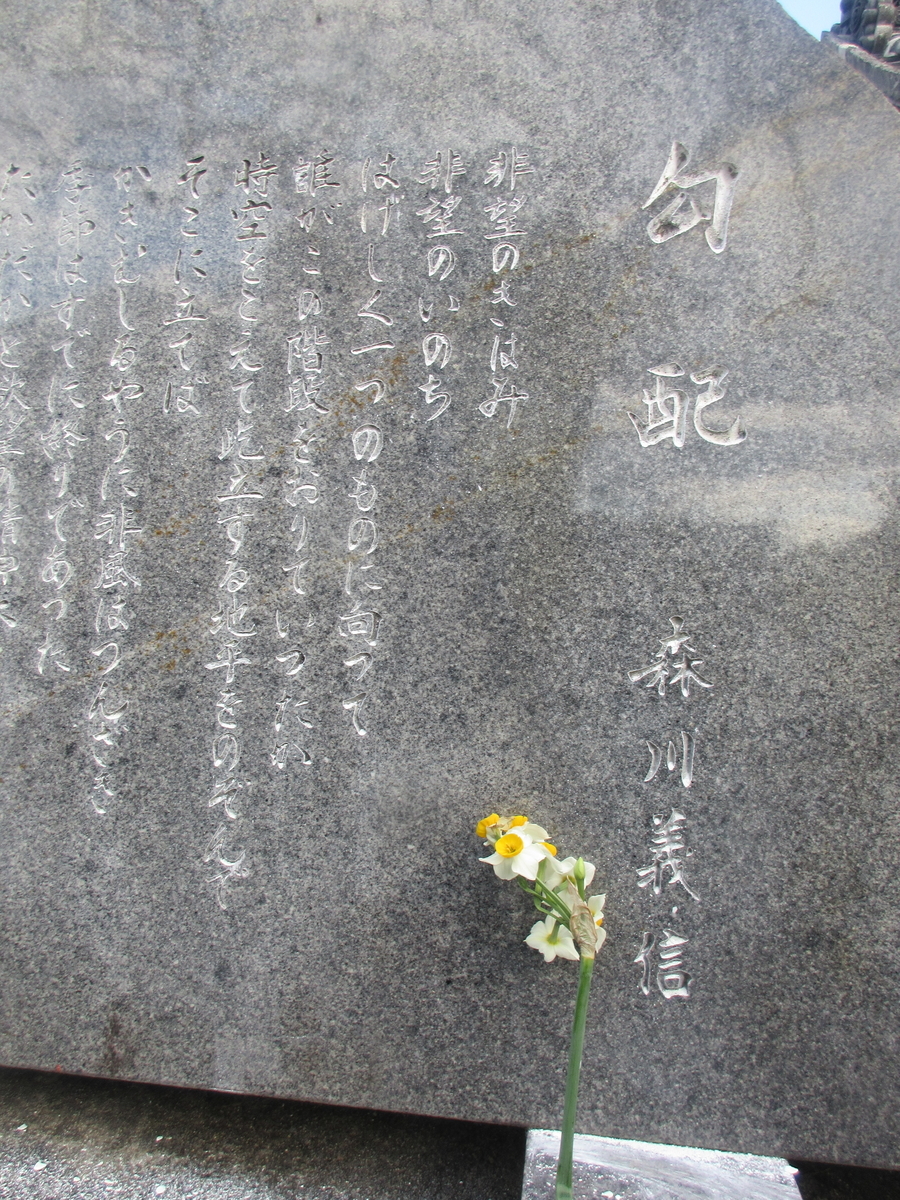 勾配
森川義信
非望のきはみ
非望のいのち
はげしく一つのものに向つて
誰がこの階段をおりていつたか
時空をこえて屹立する地平をのぞんで
そこに立てば
かきむしるやうに非風はつんざき
季節はすでに終りであつた
たかだかと